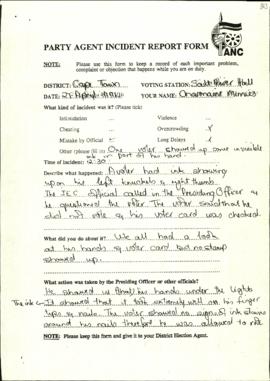 ANC
PARTY AGENT INCIDENT REPORT FORM
NOTE: Please use this form to keep a record of each important problem, complaint or objection that happens while you are on duty.
DISTRICT: Cape Town VOTING STATION: Salt River Hall
DATE: 27 April 1994 YOUR NAME: Charmaine
What kind of incident was it? (Please tick)
Intimidation Violence
Cheating Overcrowding
Mistake by Official Long Delays
Other (please fill in) One voter showed up some invisible
ink on part of his hand.
Time of incident: 12:30
Describe what happened: A voter had ink showing
upon his left knuckles & right thumb.
The IEC official called in the Presiding Officer &
he questioned the voter. The voter said that he
did not vote & his voter card was checked.
What did you do about it? We all had a look
at his hands & voter card but no stamp
showed up.
What action was taken by the Presiding Officer or other officials?
He showed us his hands under the lights
The ink It showed that it took extremely well on his finger
tips & nails. The voter showed no signs of ink stains
around his nails therefore he was allowed to vote
NOTE: Please keep this form and give it to your District Election Agent.